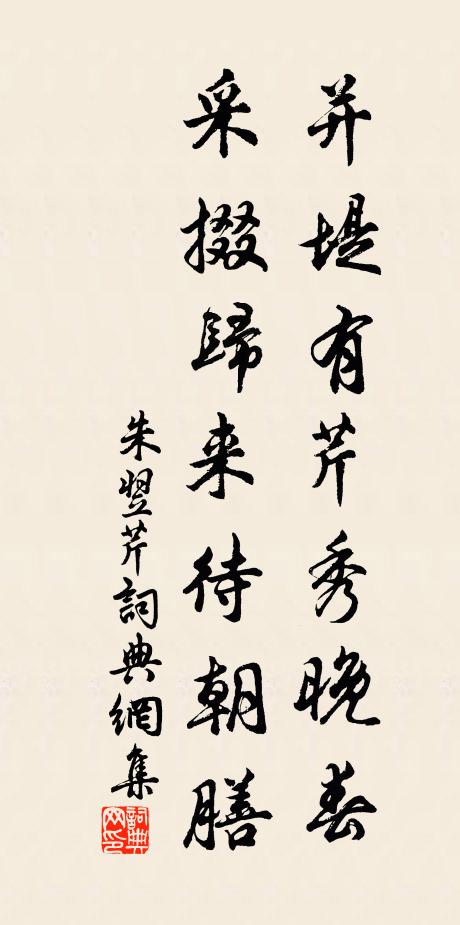 并堤有芹秀晚春
采掇歸来待朝膳
朱翌芹詞典網集
詞典網印